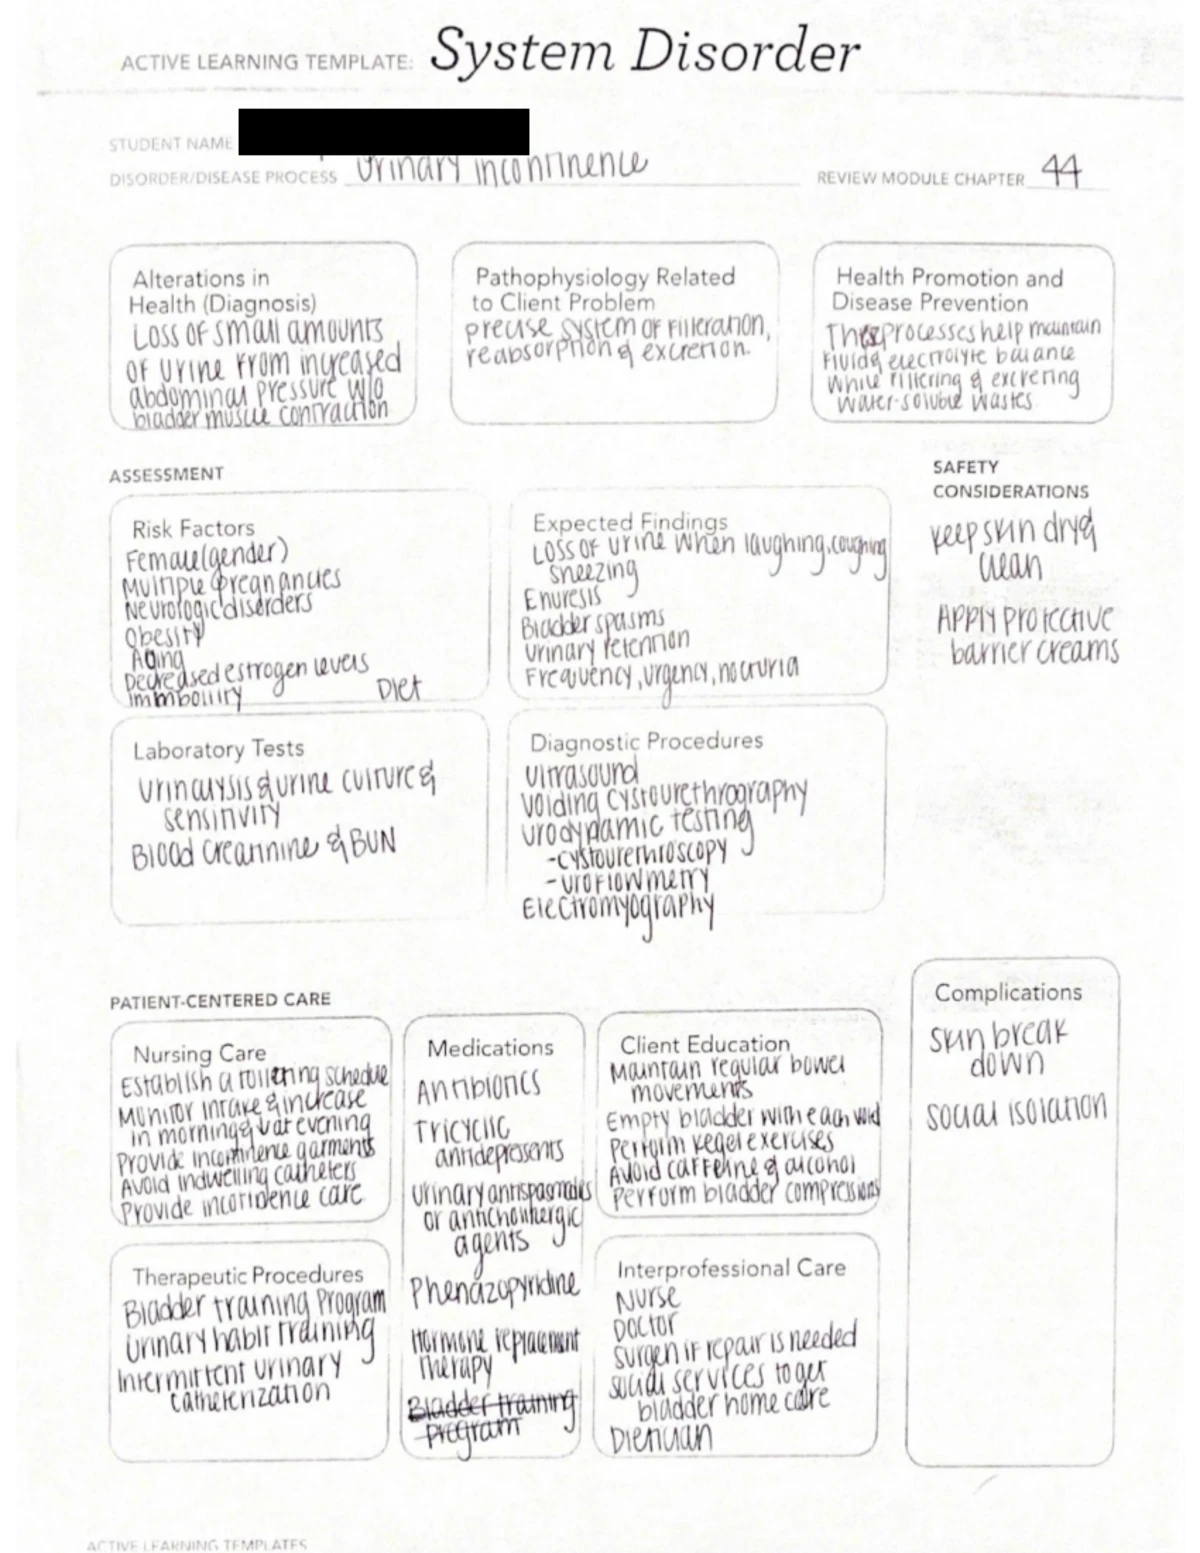 ACTIVE LEARNING TEMPLATE: System Disorder
STUDENT NAME
DISORDER/DISEASE PROCESS Urinary incontinence
REVIEW MODULE CHAPTER 44
Alterations in
Health (Diagnosis)
Loss of small amounts
of urine from increased
abdominal pressure w/o
bladder muscle contraction
Pathophysiology Related
to Client Problem
precise system of filteration,
reabsorption & excretion.
Health Promotion and
Disease Prevention
These processes help maintain
fluid & electrolyte balance
while filtering & excreting
water-soluble wastes.
ASSESSMENT
SAFETY
CONSIDERATIONS
keep skin dry &
clean
Apply protective
barrier creams
Risk Factors
Female (gender)
Multiple pregnancies
Neurologic disorders
Obesity
Aging
Decreased estrogen levels
Immbolity
Diet
Expected Findings
Loss of urine when laughing, coughing
sneezing
Enuresis
Bladder spasms
Urinary retention
Frequency, urgency, nocturia
Laboratory Tests
Urinalysis & urine culture &
sensitivity
Blood creatinine & BUN
Diagnostic Procedures
Ultrasound
Voiding cystourethrography
Urodynamic testing
-cystourethroscopy
-uroflowmetry
Electromyography
PATIENT-CENTERED CARE
Nursing Care
Establish a toileting schedule
Monitor intake & increase
in morning & evening
Provide incontinence garments
Avoid indwelling catheters
Provide care
Medications
Antibiotics
Tricyclic
antidepressents
Urinary antispasmodes
or anticholinergic
agents
Phenazopyridine
Hormone replacement
therapy
Bladder training
program
Client Education
Maintain regular bowel
movements
Empty bladder with each void
Perform kegel exercises
Avoid caffeine & alcohol
Perform bladder compressions
Complications
Skin break
down
social isolation
Therapeutic Procedures
Bladder training Program
Urinary habit training
Intermittent urinary
catheterization
Interprofessional Care
Nurse
Doctor
Surgen if repair is needed
social services to get
bladder home care
Dietician
ACTIVE LEARNING TEMPLATES